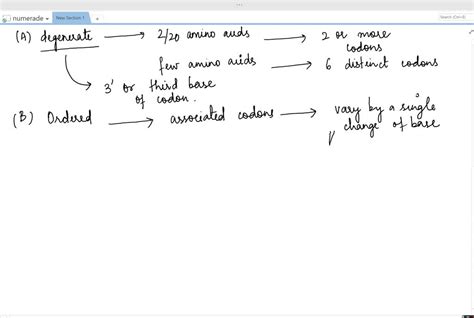 numerade
New Section 1
Search (Ctrl+E)
(A) degenerate → 2/20 amino acids → 2 or more
codons
few amino acids → 6 distinct codons
3' or third base
of codon.
(B) Ordered → associated codons → vary by a single
change of base